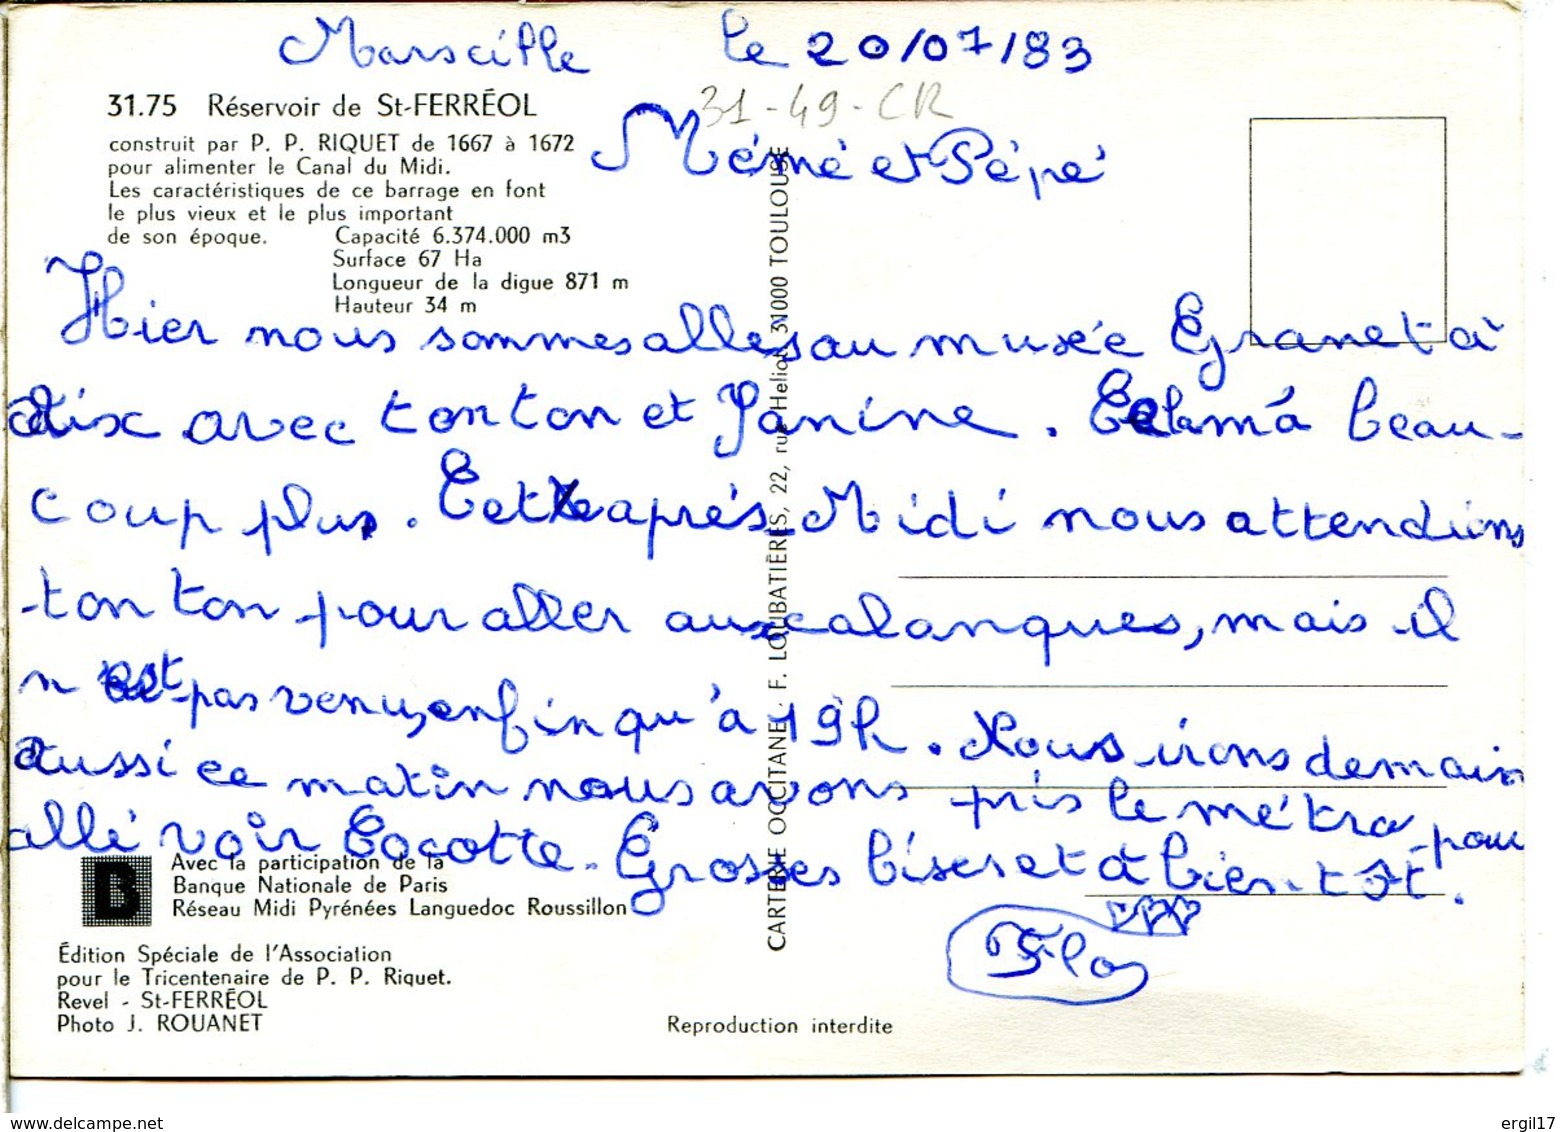 Marseille le 20/07/83
31-49-CR
31.75 Réservoir de St-FERRÉOL
construit par P. P. RIQUET de 1667 à 1672
pour alimenter le Canal du Midi.
Les caractéristiques de ce barrage en font
le plus vieux et le plus important
de son époque. Capacité 6.374.000 m3
Surface 67 Ha
Longueur de la digue 871 m
Hauteur 34 m
Mémé et Pépé
Hier nous sommes allés au musée Granet à
aix avec tonton et Janine. Cela m'a beau-
coup plus. Cette après-Midi nous attendions
tonton pour aller aux calanques, mais il
n'est pas venu, enfin qu'à 19h. Nous irons demain
aussi ce matin nous avons pris le métro pour
allé voir Cocotte. Grosses bises et à bien-tôt.
Flo
CARTERIE OCCITANE - F. LOUBATIÈRES, 22, rue Hélion 31000 TOULOUSE
B
Avec la participation de la
Banque Nationale de Paris
Réseau Midi Pyrénées Languedoc Roussillon
Édition Spéciale de l'Association
pour le Tricentenaire de P. P. Riquet.
Revel - St-FERRÉOL
Photo J. ROUANET
Reproduction interdite
www.delcampe.net
ergil17